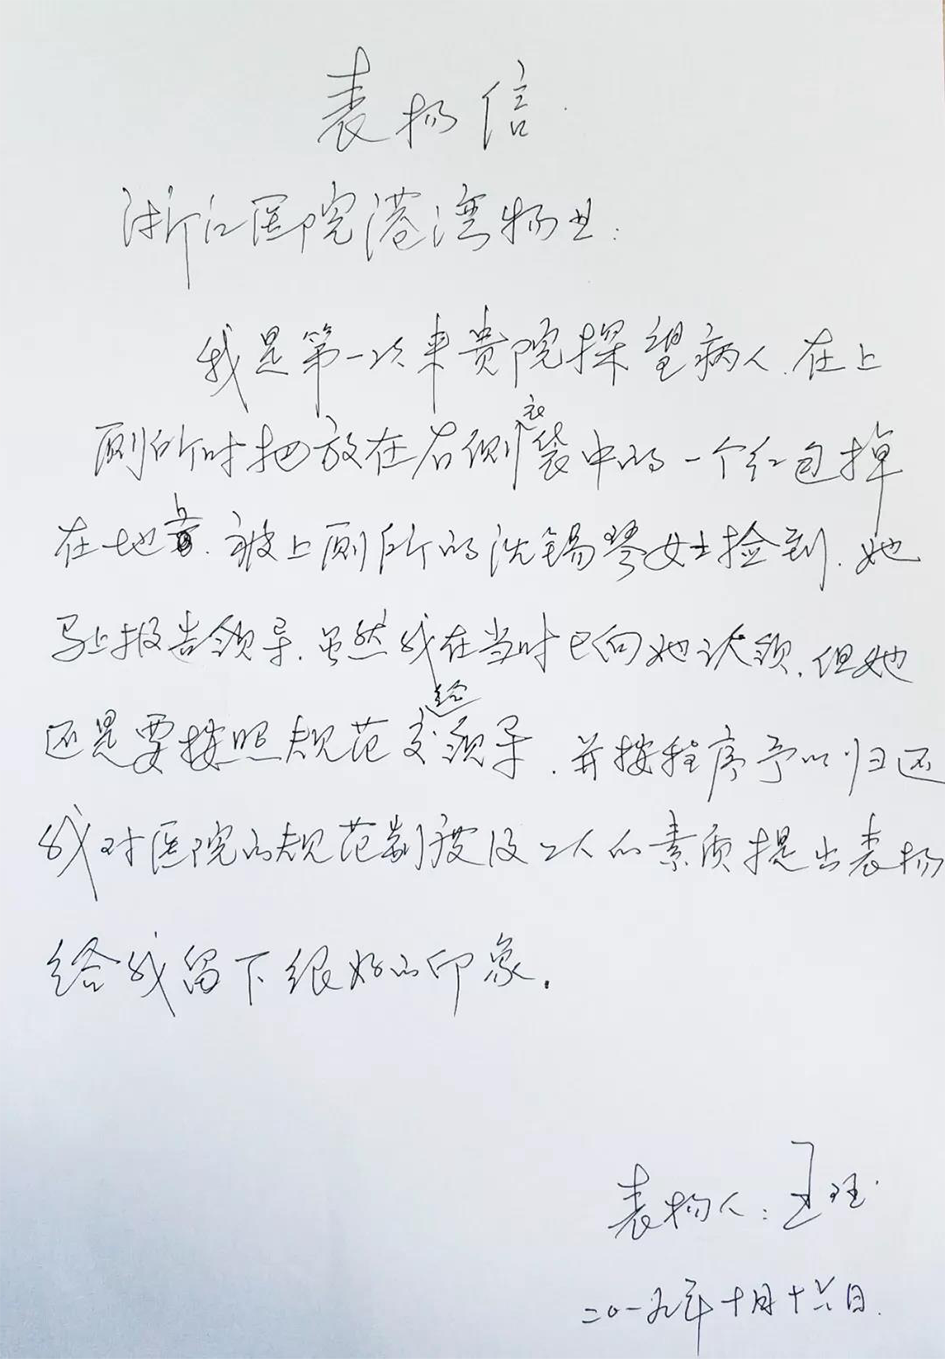 表扬信
浙江医院港湾物业：
我是第一次来贵院探望病人.在上
厕所时把放在右侧衣袋中的一个红包掉
在地上.被上厕所的沈锡琴女士捡到.她
马上报告领导.虽然我在当时已向她认领.但她
还是要按照规范交给领导.并按程序予以归还
我对医院的规范制度及工人的素质提出表扬
给我留下很好的印象.
表扬人：王
二〇一九年十月十六日.